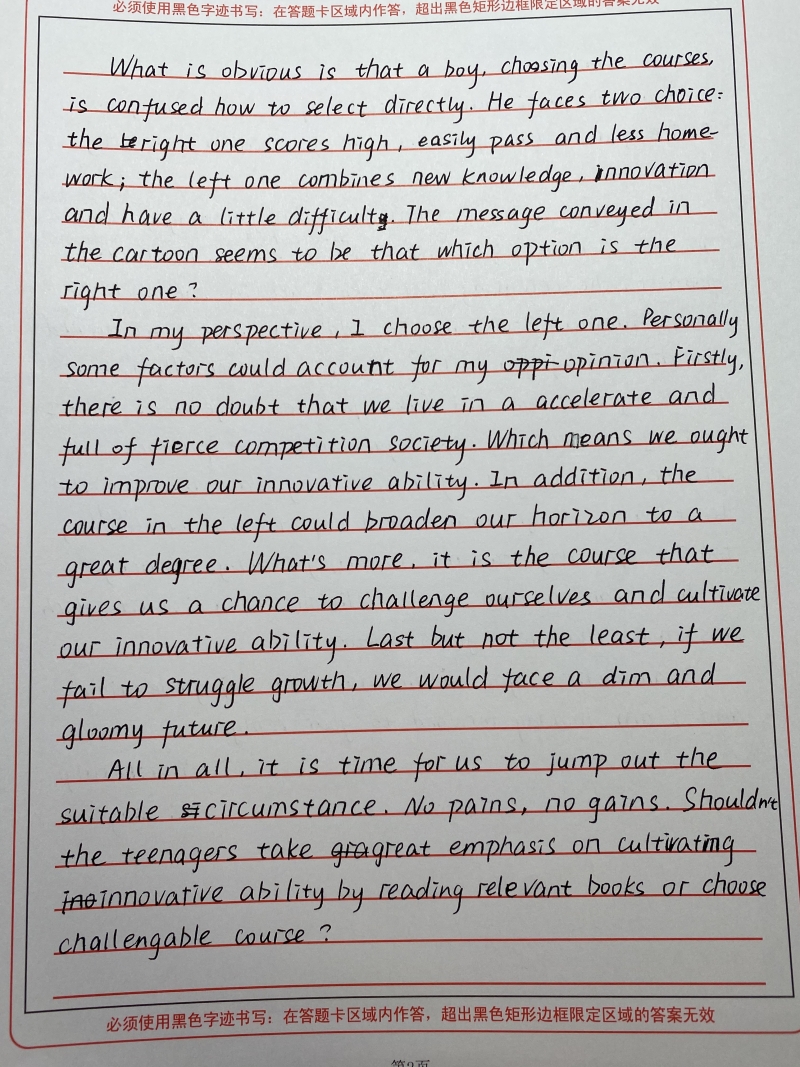 必须使用黑色字迹书写：在答题卡区域内作答，超出黑色矩形边框限定区域的答案无效
What is obvious is that a boy, choosing the courses,
is confused how to select directly. He faces two choice:
the right one scores high, easily pass and less home-
work; the left one combines new knowledge, innovation
and have a little difficulty. The message conveyed in
the cartoon seems to be that which option is the
right one?
In my perspective, I choose the left one. Personally
some factors could account for my opinion. Firstly,
there is no doubt that we live in a accelerate and
full of fierce competition society. Which means we ought
to improve our innovative ability. In addition, the
course in the left could broaden our horizon to a
great degree. What's more, it is the course that
gives us a chance to challenge ourselves and cultivate
our innovative ability. Last but not the least, if we
fail to struggle growth, we would face a dim and
gloomy future.
All in all, it is time for us to jump out the
suitable circumstance. No pains, no gains. Shouldn't
the teenagers take great emphasis on cultivating
innovative ability by reading relevant books or choose
challengable course?
必须使用黑色字迹书写：在答题卡区域内作答，超出黑色矩形边框限定区域的答案无效